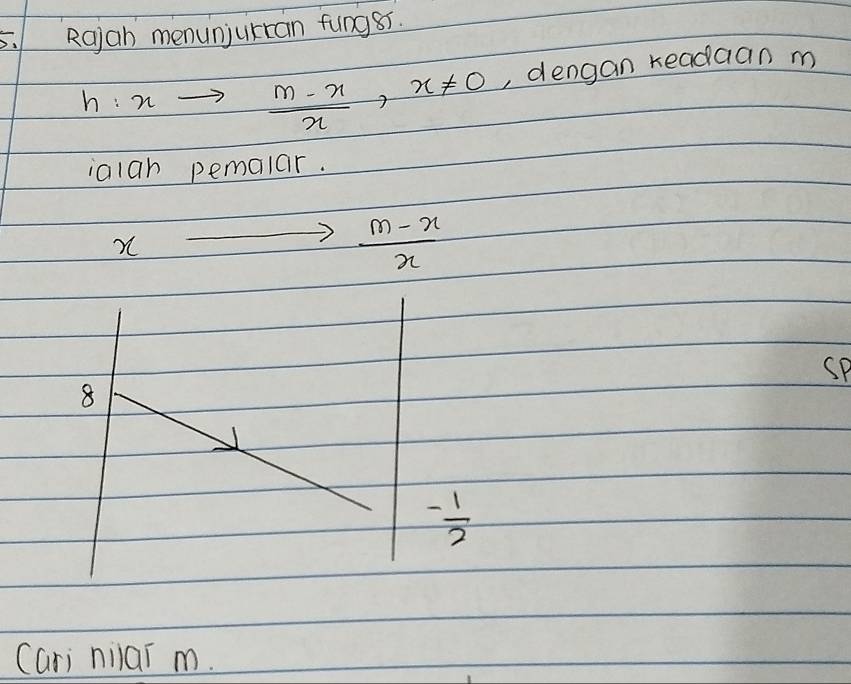 5. Rajah menunjukkan fungsi.
h : x → (m - x)/x , x ≠ 0 , dengan keadaan m
ialah pemalar.
x → (m - x)/x
8
SP
-1/2
Cari nilai m.